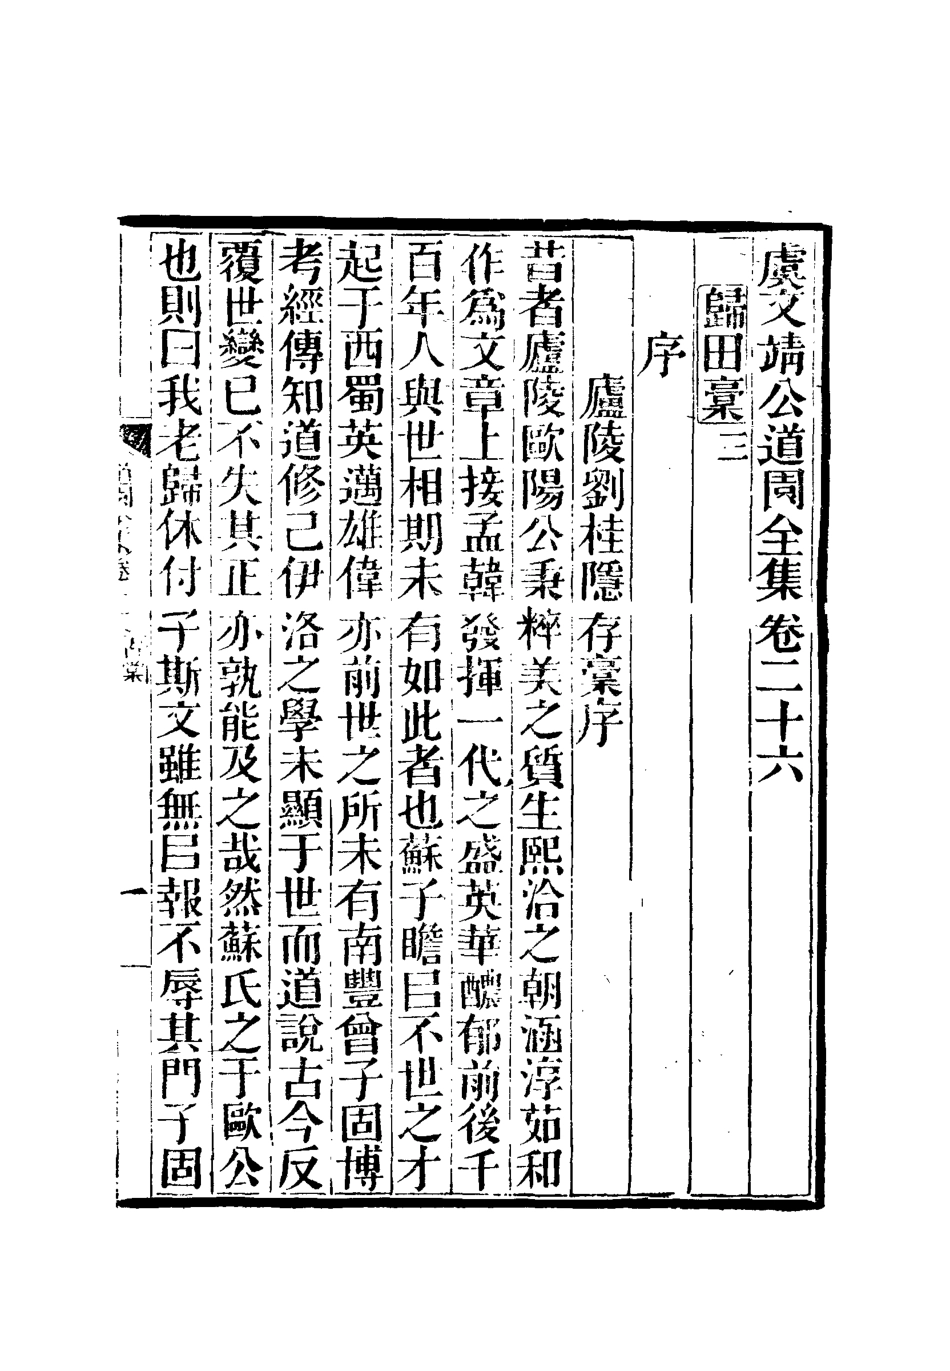 虞文靖公道園全集卷二十六
歸田稾三
序
廬陵劉桂隱存稾序
昔者廬陵歐陽公秉粹美之質生熙洽之朝涵淳茹和
作爲文章上接孟韓發揮一代之盛英華醲郁前後千
百年人與世相期未有如此者也蘇子瞻㠯不世之才
起于西蜀英邁雄偉亦前世之所未有南豐曾子固博
考經傳知道修己伊洛之學未顯于世而道說古今反
覆世變已不失其正亦孰能及之哉然蘇氏之于歐公
也則曰我老歸休付子斯文雖無㠯報不辱其門子固
一